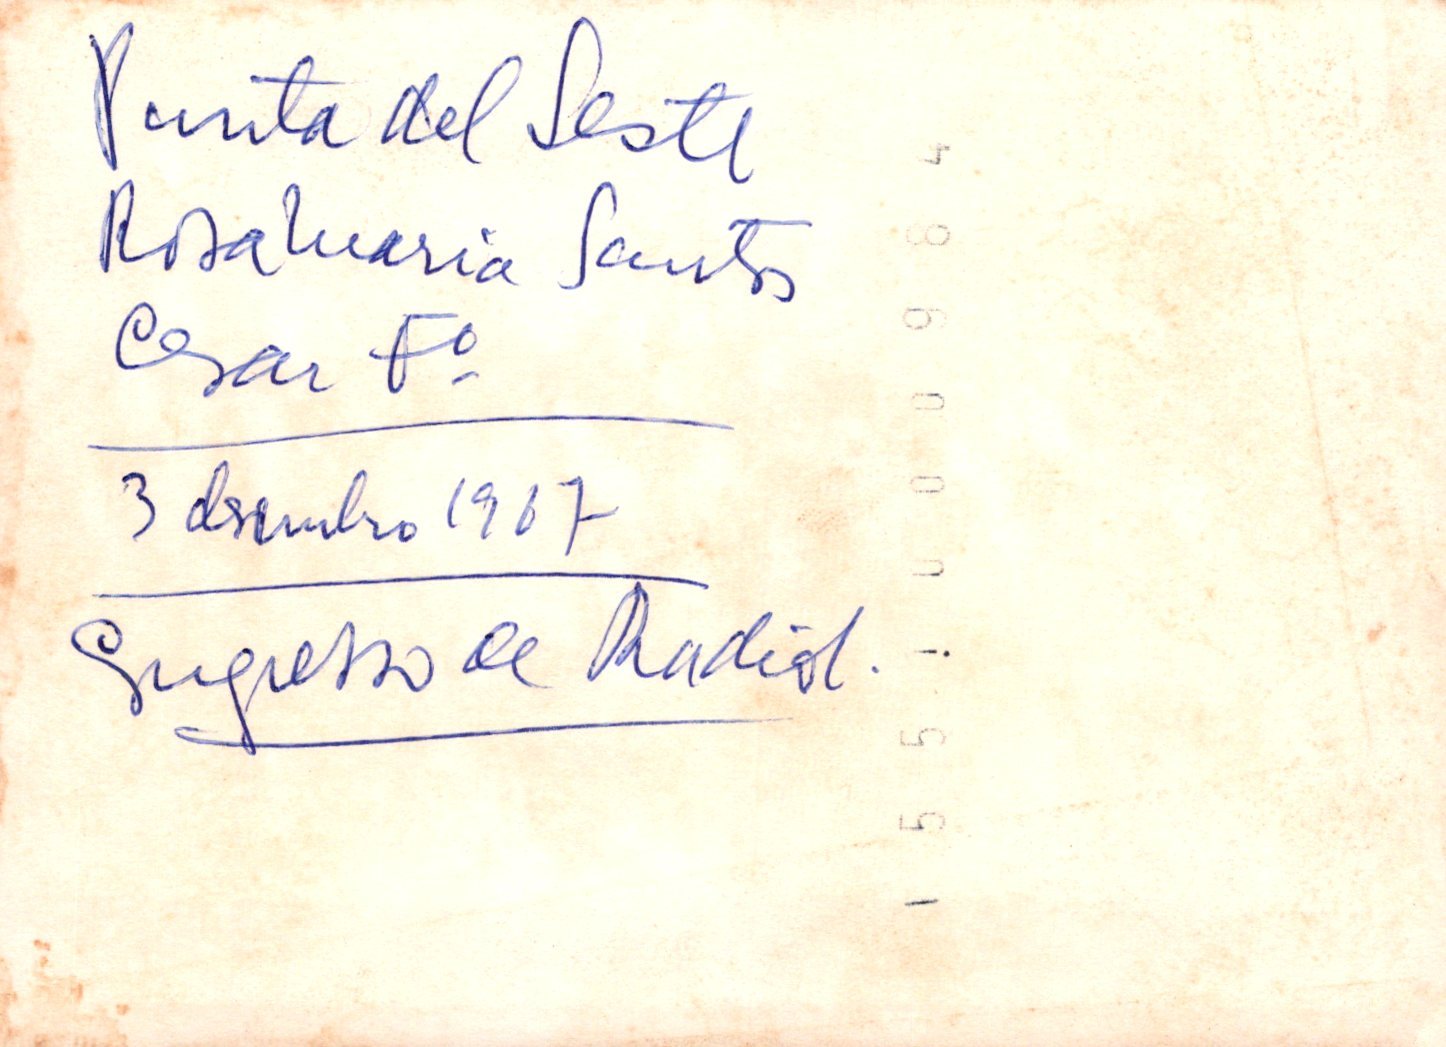 Punta del Leste
Rosa Maria Santos
Cesar Fº
3 dezembro 1967
Congresso de Radiol.